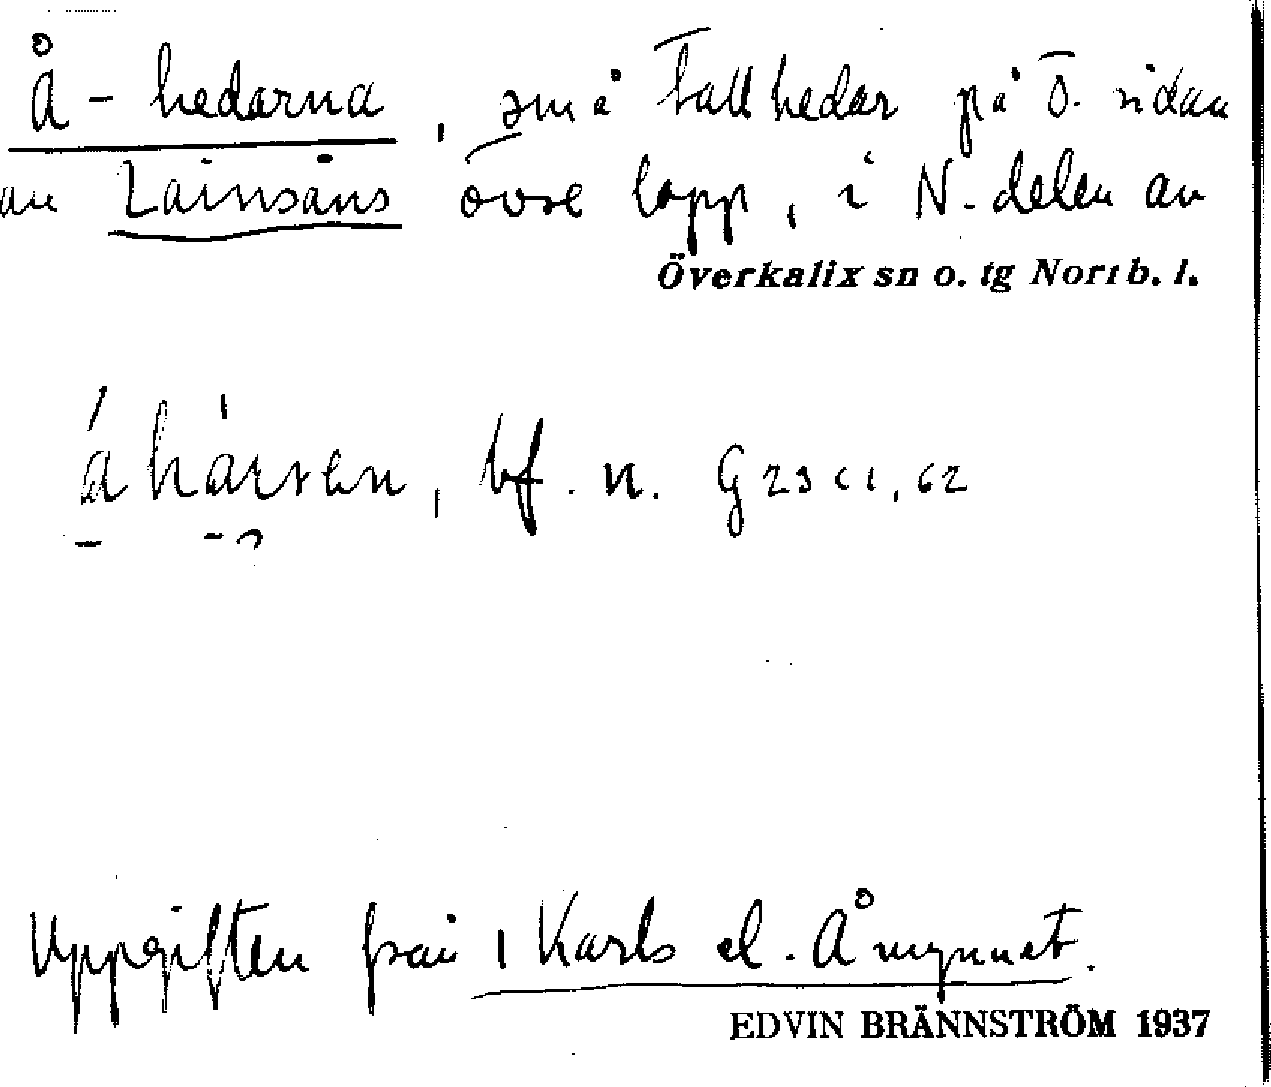 Å-hedarna, små tallhedar på Ö. sidan
av Lainsåns övre lopp, i N-delen av
Överkalix sn o. tg Nortb. l.
bf. n. G 23 c 1, 62
Uppgiften från 1 Karls el. Åmynnet.
EDVIN BRÄNNSTRÖM 1937